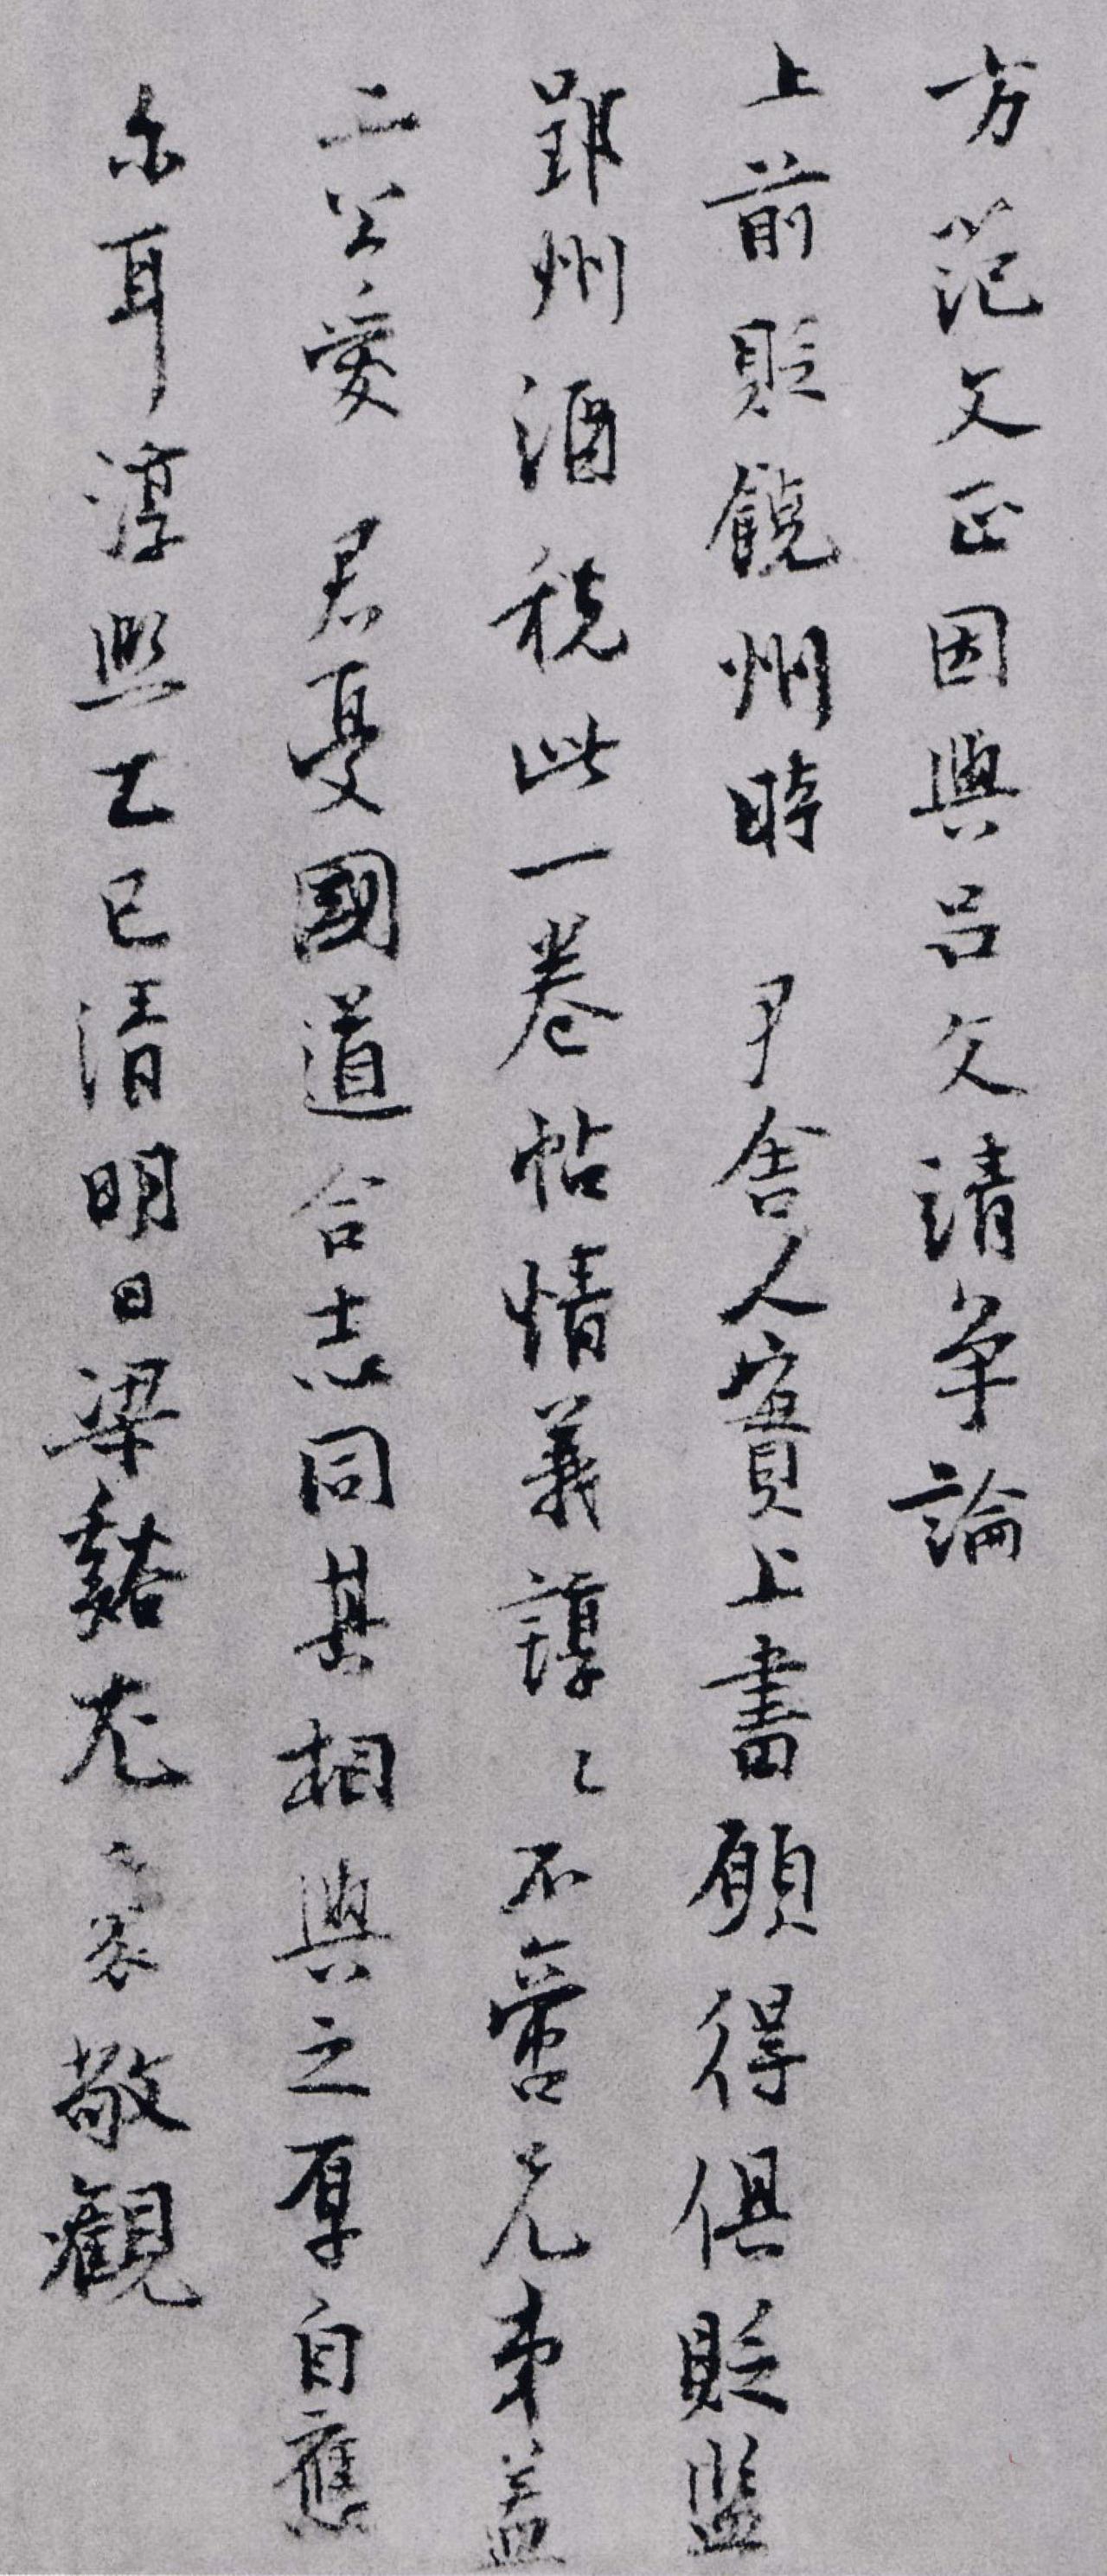 方范文正因與呂文請爭論
上前貶饒州時尹舍人實上書願得俱貶監
郢州酒稅此一卷帖情義諄〻不啻兄弟蓋
二公愛君憂國道合志同其相與之厚自應
尒耳淳熙乙巳清明日梁谿尤袤敬觀